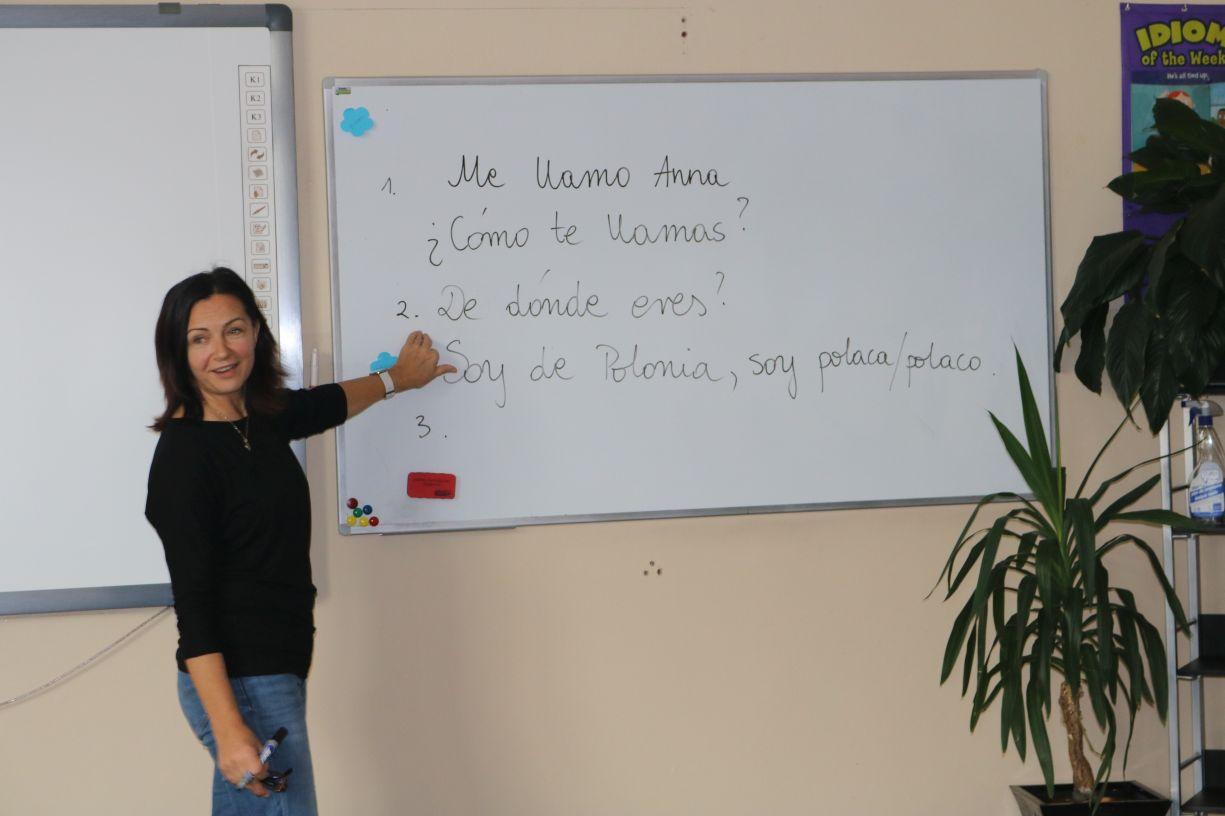 K1
K2
K3
1. Me llamo Anna
¿Cómo te llamas?
2. De dónde eres?
Soy de Polonia, soy polaca/polaco.
3.
IDIOM
of the Week
He's all tied up.